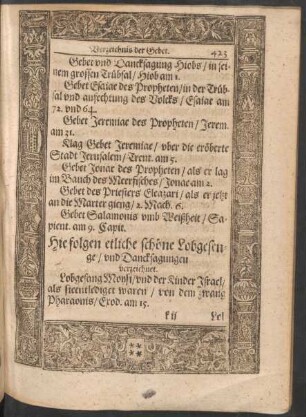 Verzeichnis der Gebet. 423
Gebet vnd Dancksagung Hiobs / in sei
nem grossen Trübsal / Hiob am 1.
Gebet Esaiae des Propheten / in der Trüb
sal vnd anfechtung des Volcks / Esaiae am
72. vnd 64.
Gebet Jeremiae des Propheten / Jerem.
am 31.
Klag Gebet Jeremiae / vber die eröberte
Stadt Jerusalem / Trent. am 5.
Gebet Jonae des Propheten / als er lag
im Bauch des Meerfisches / Jonae am 2.
Gebet des Priesters Eleazari / als er jetzt
an die Marter gieng / 2. Mach. 6.
Gebet Salamonis vmb Weißheit / Sa
pient. am 9. Capit.
Hie folgen etliche schöne Lobgesen
ge / vnd Dancksagungen
verzeichnet.
Lobgesang Moysi / vnd der Kinder Israel /
als sie entlediget waren / von dem zwang
Pharaonis / Exod. am 15.
k ij Lob